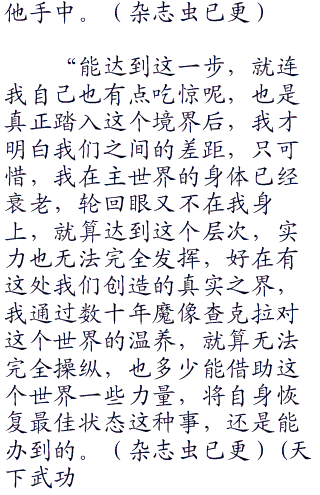 他手中。（杂志虫已更）
“能达到这一步，就连
我自己也有点吃惊呢，也是
真正踏入这个境界后，我才
明白我们之间的差距，只可
惜，我在主世界的身体已经
衰老，轮回眼又不在我身
上，就算达到这个层次，实
力也无法完全发挥，好在有
这处我们创造的真实之界，
我通过数十年魔像查克拉对
这个世界的温养，就算无法
完全操纵，也多少能借助这
个世界一些力量，将自身恢
复最佳状态这种事，还是能
办到的。（杂志虫已更）(天
下武功